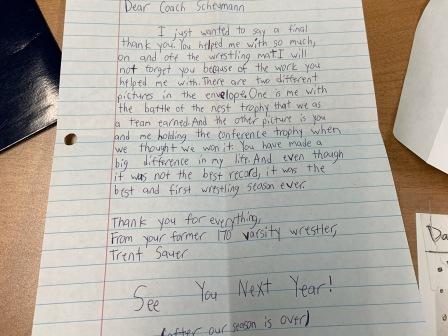 Dear Coach Scheumann
I just wanted to say a final
thank you. You helped me with so much,
on and off the wrestling mat. I will
not forget you because of the work you
helped me with. There are two different
pictures in the envelope. One is me with
the battle of the nest trophy that we as
a team earned. And the other picture is you
and me holding the conference trophy when
we thought we won it. You have made a
big difference in my life. And even though
it was not the best record, it was the
best and first wrestling season ever.
Thank you for everything,
From your former 170 varsity wrestler,
Trent Sauer
See You Next Year!
(after our season is over)
Da